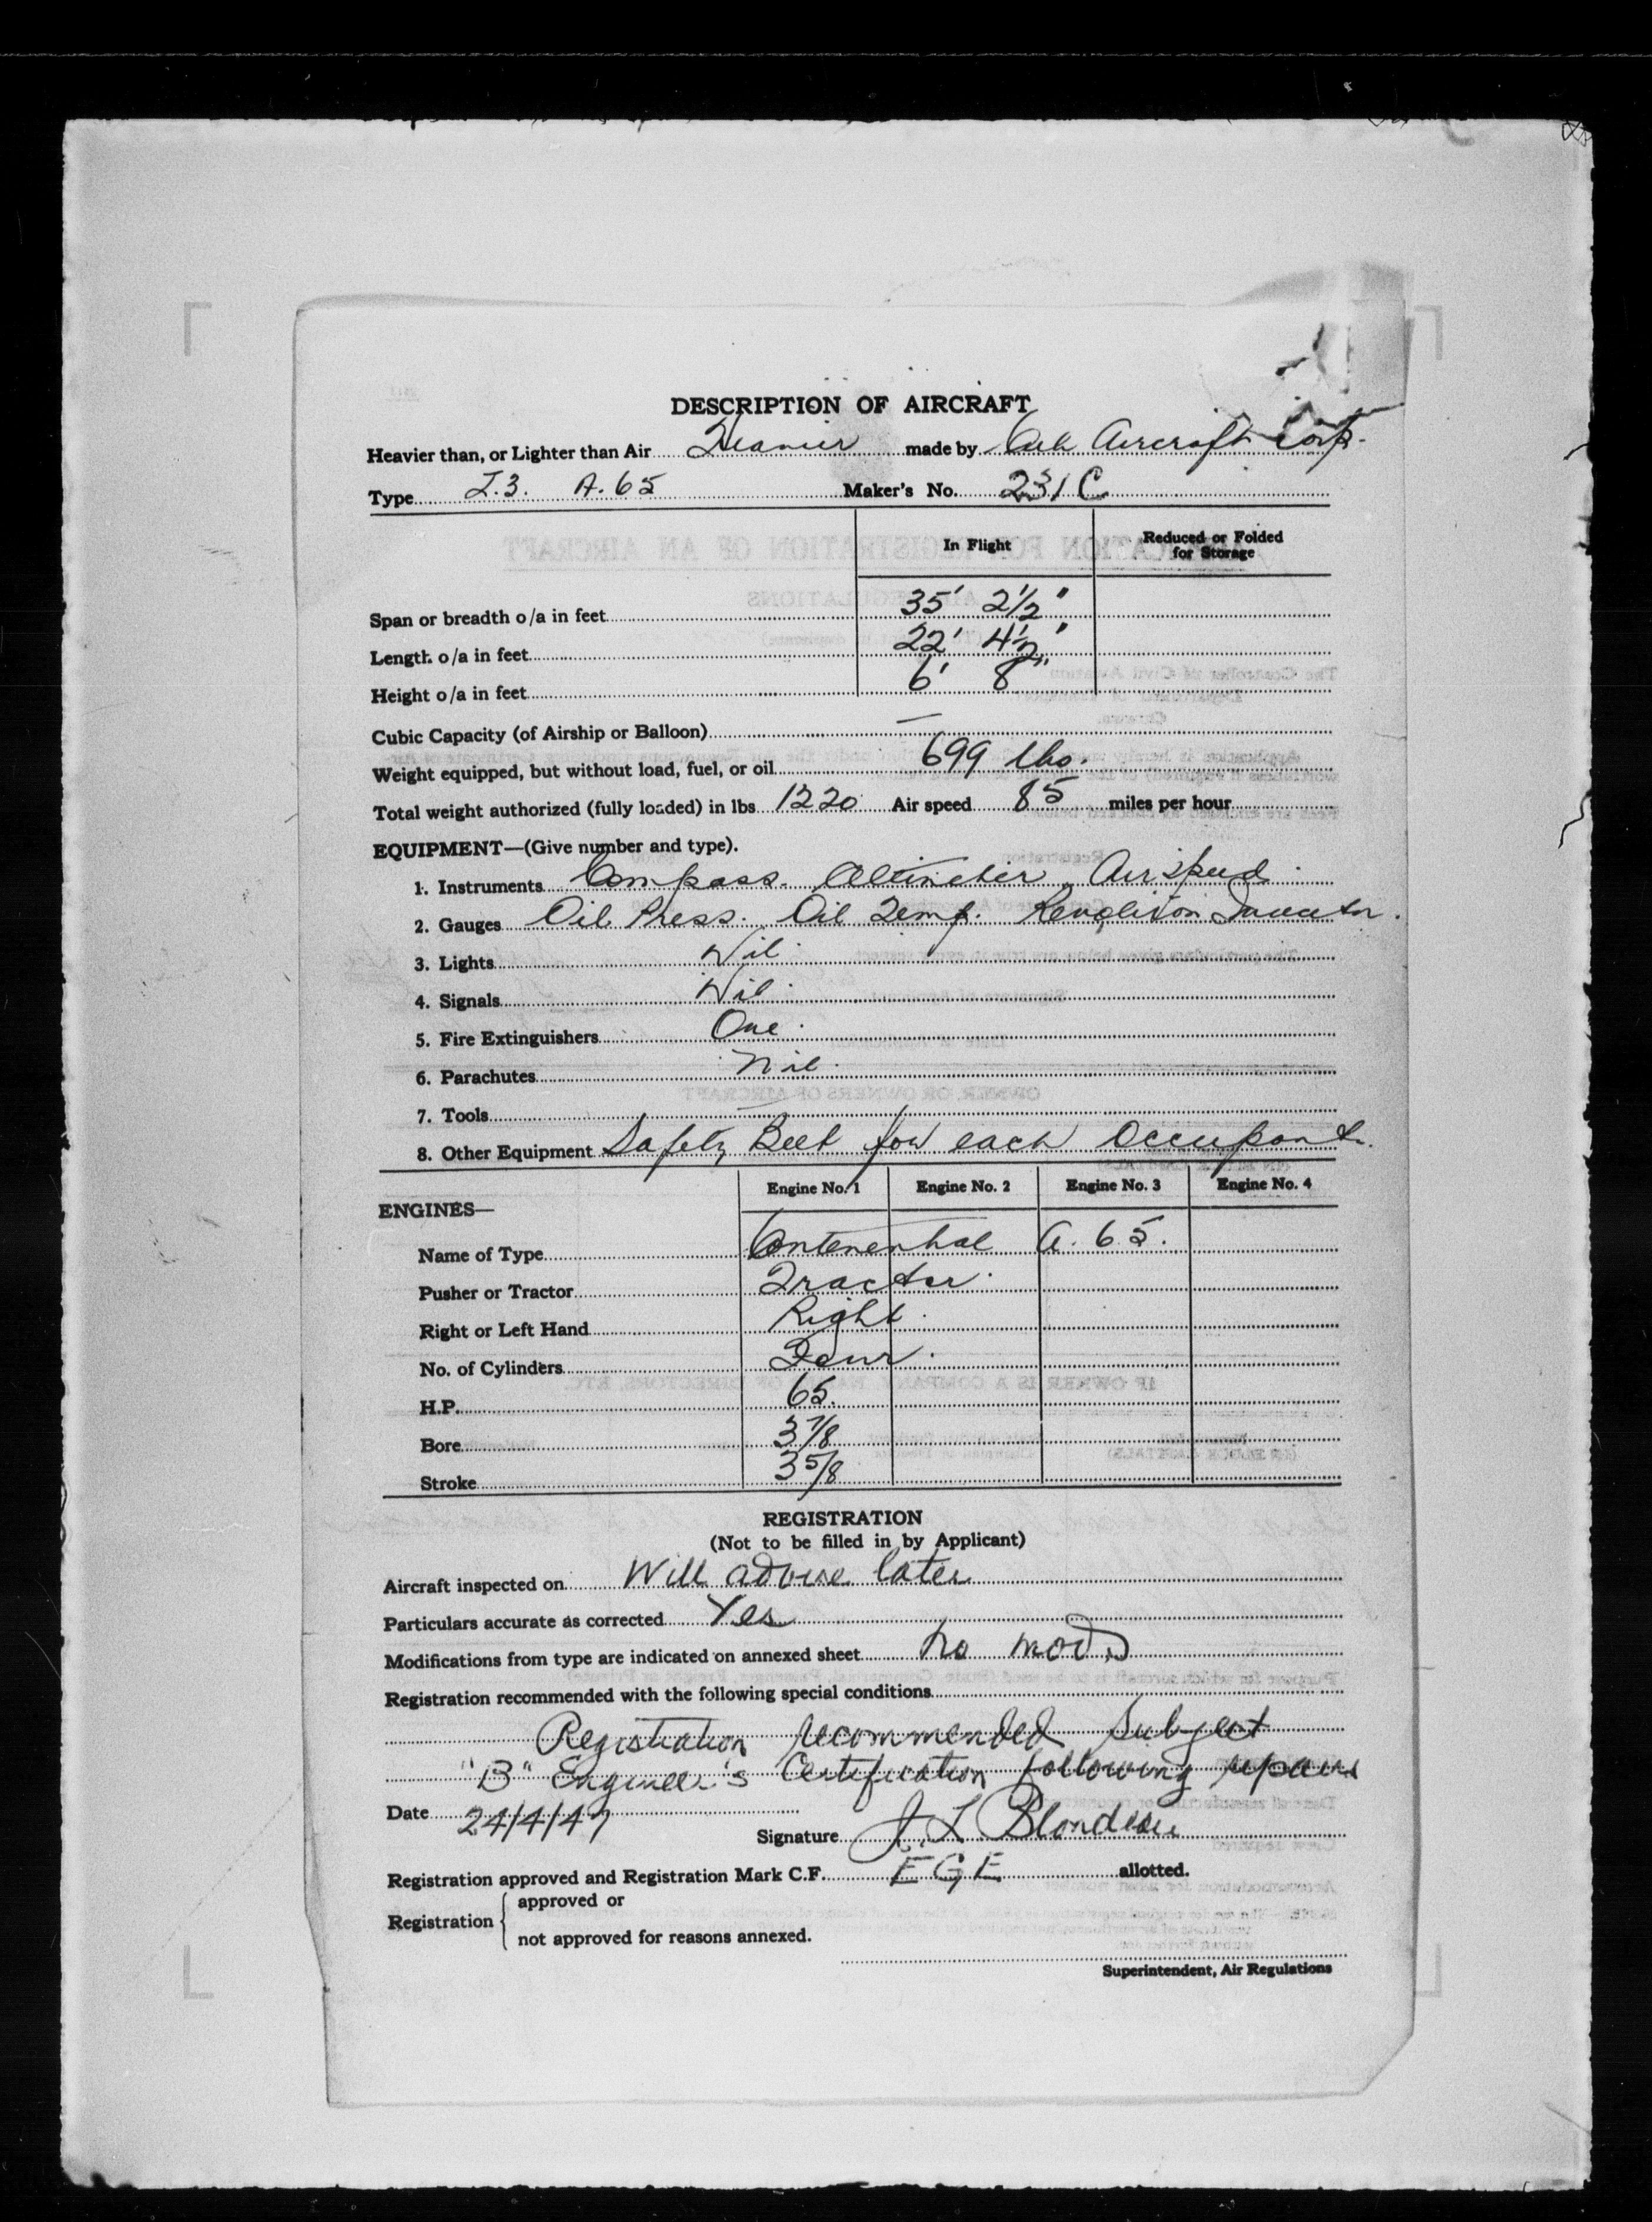 DESCRIPTION OF AIRCRAFT
Heavier than, or Lighter than Air Heavier made by Cub Aircraft Corp.
Type J.3. A.65 Maker's No. 231 C
In Flight Reduced or Folded for Storage
Span or breadth o/a in feet 35' 2½"
Length o/a in feet 22' 4½"
Height o/a in feet 6' 8"
Cubic Capacity (of Airship or Balloon) —
Weight equipped, but without load, fuel, or oil 699 lbs.
Total weight authorized (fully loaded) in lbs 1220 Air speed 85 miles per hour
EQUIPMENT—(Give number and type).
1. Instruments Compass. Altimeter. Air speed
2. Gauges Oil Press. Oil Temp.
3. Lights Nil
4. Signals Nil
5. Fire Extinguishers One.
6. Parachutes Nil.
7. Tools —
8. Other Equipment Safety Belt for each Occupant.
Engine No. 1 Engine No. 2 Engine No. 3 Engine No. 4
ENGINES—
Name of Type Contenental A. 65.
Pusher or Tractor Tractor.
Right or Left Hand Right.
No. of Cylinders Four.
H.P. 65.
Bore 3 7/8
Stroke 3 5/8
REGISTRATION
(Not to be filled in by Applicant)
Aircraft inspected on Will advise later
Particulars accurate as corrected Yes
Modifications from type are indicated on annexed sheet No mods
Registration recommended with the following special conditions
Registration recommended Subject
"B" Engineer's Certification following repairs
Date 24/4/47
Signature J. L Blondeau
Registration approved and Registration Mark C.F. EGE allotted.
Registration { approved or
not approved for reasons annexed.
Superintendent, Air Regulations